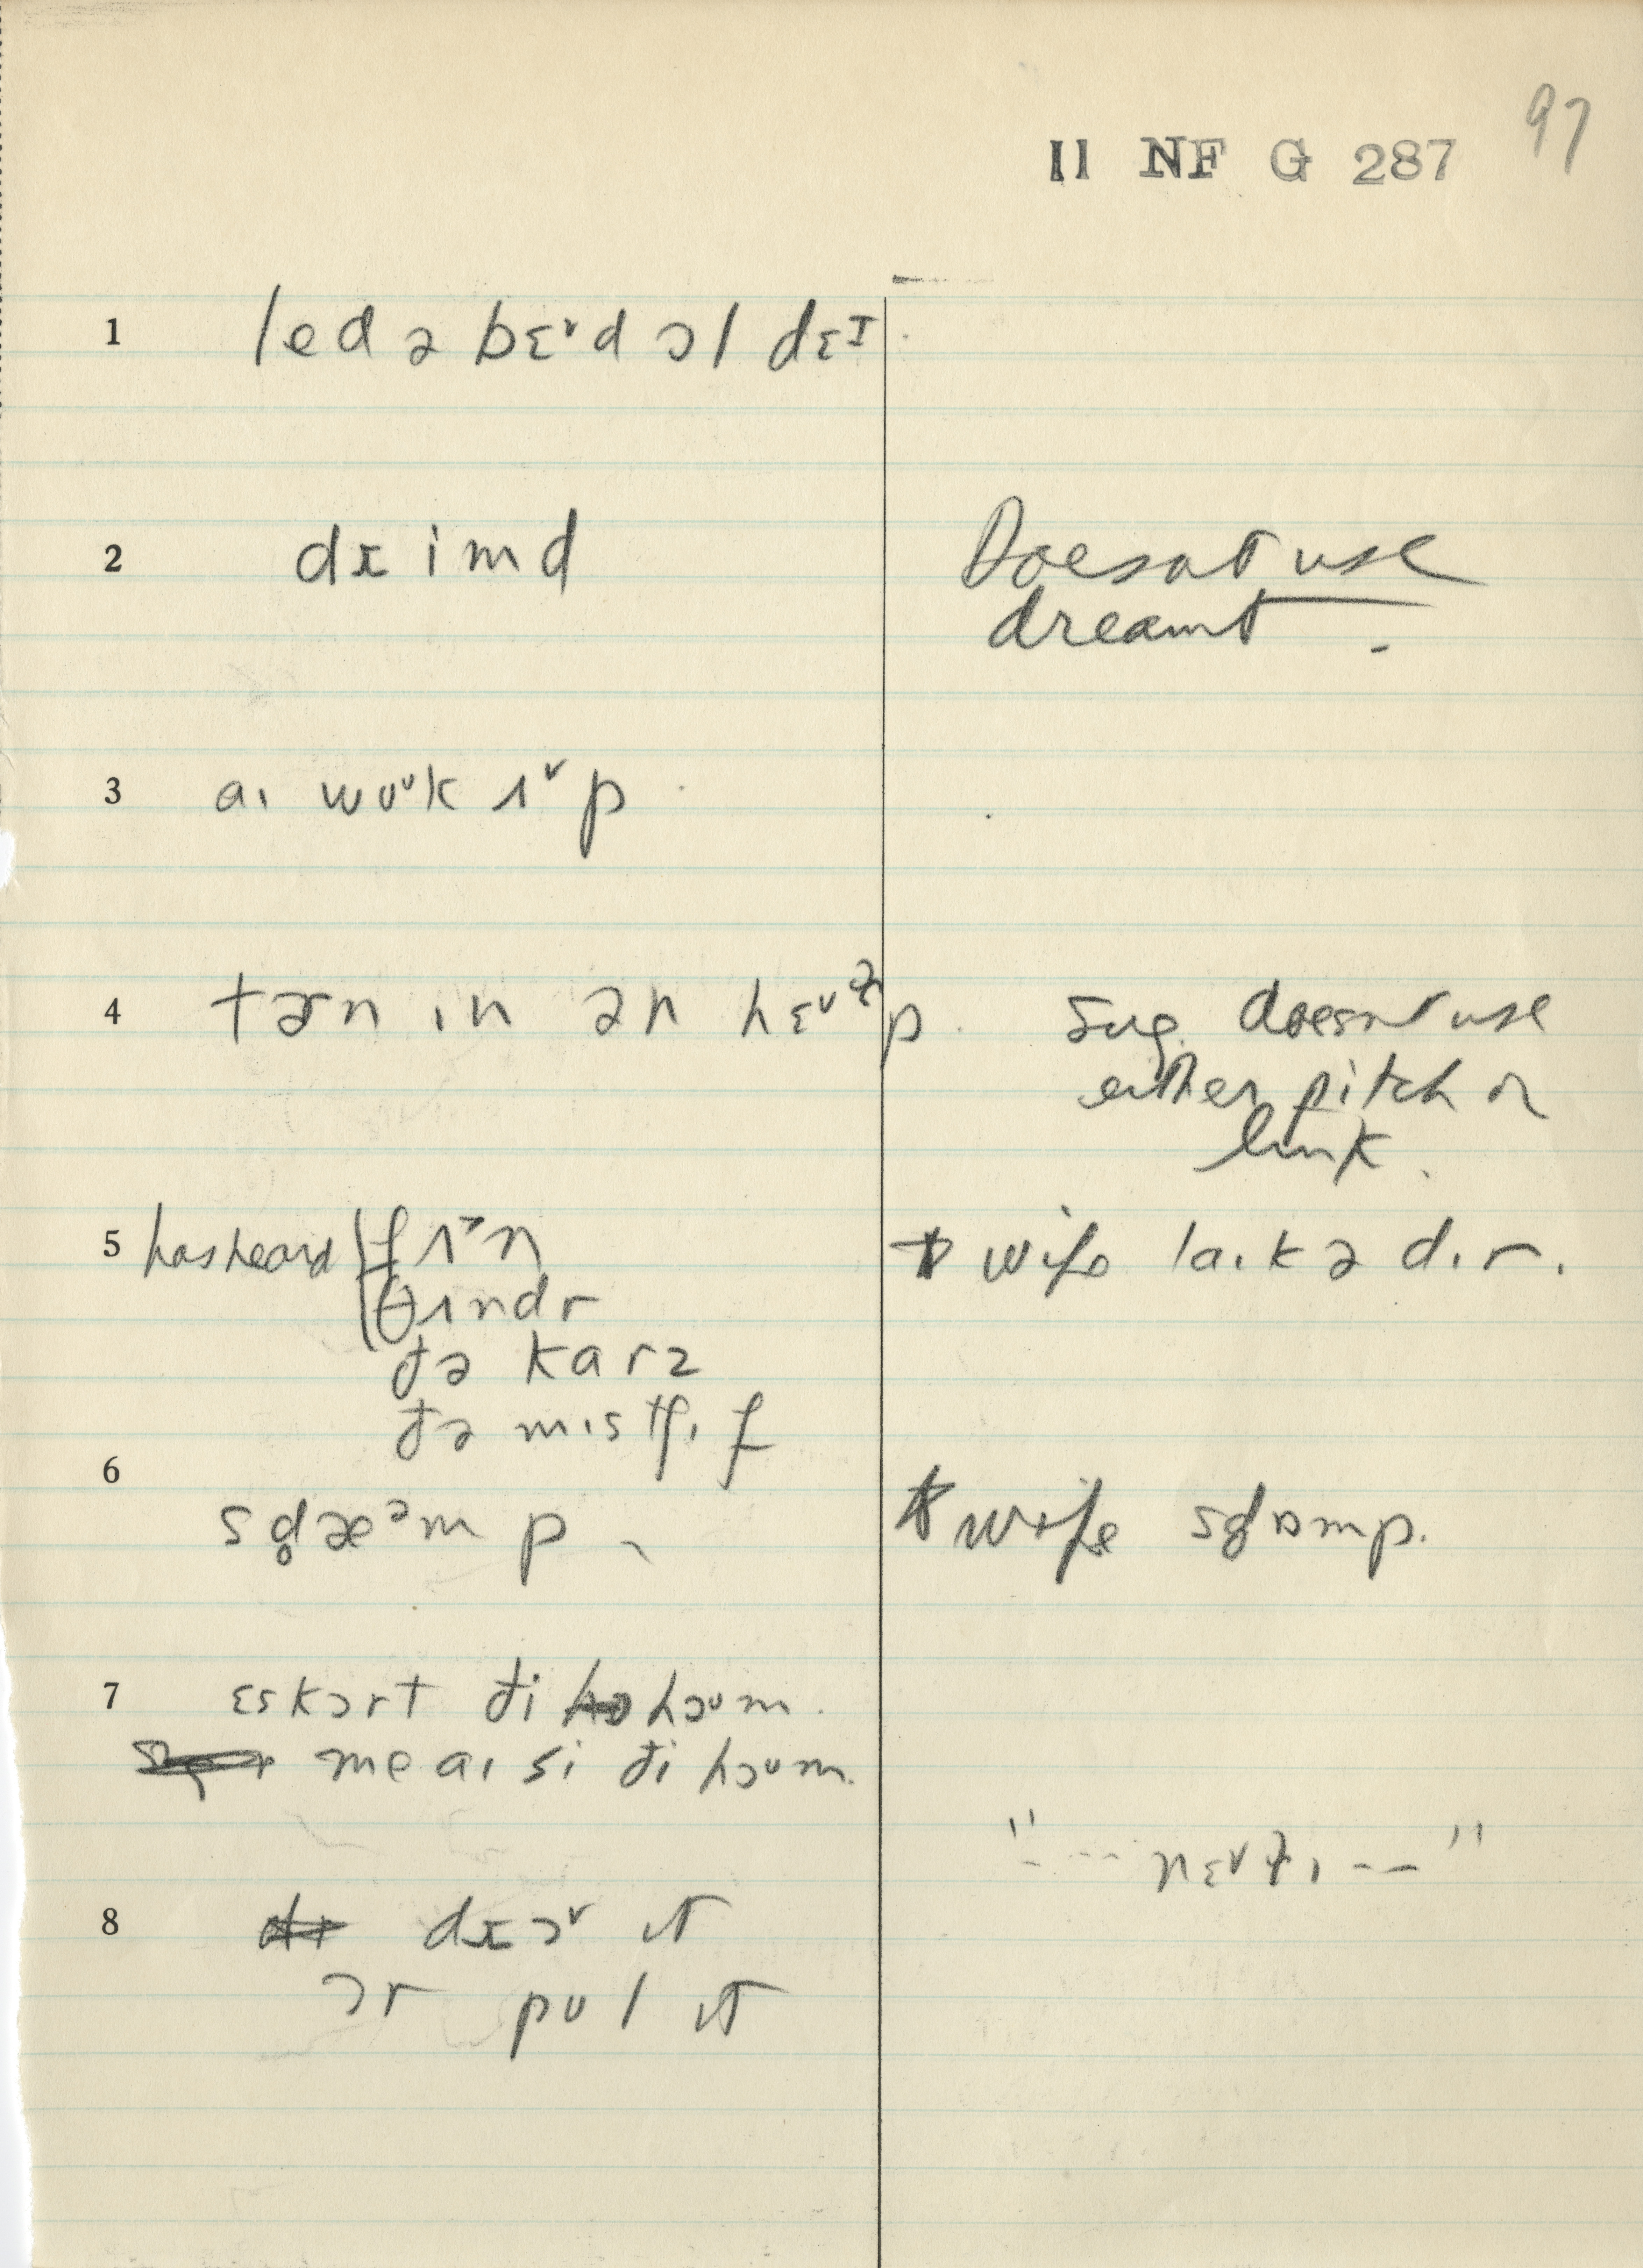 97
II NF G 287
1 led ə bɛ˅d ɔl dɛɪ
2 dɪimd
Doesnt use
dreamt.
3 aɪ wʊ˅k ʌ˅p
4 tɚn ɪn ən hɛ˅ɫp. sug. doesnt use
either pitch or
link.
5 has heard fʌ˃n
wife laɪkədɪr.
θʌndr
ðə karz
ðə mɪstʃɪf
6
sd̥æᵊmp
wife sd̥ɒmp.
7 ɛskɔrt ði hɔʊm.
me aɪ si ði hɔʊm.
"--- nɛ˅ɫɪ --"
8 dɪɔ˅ ɪt
ɔr pʊl ɪt